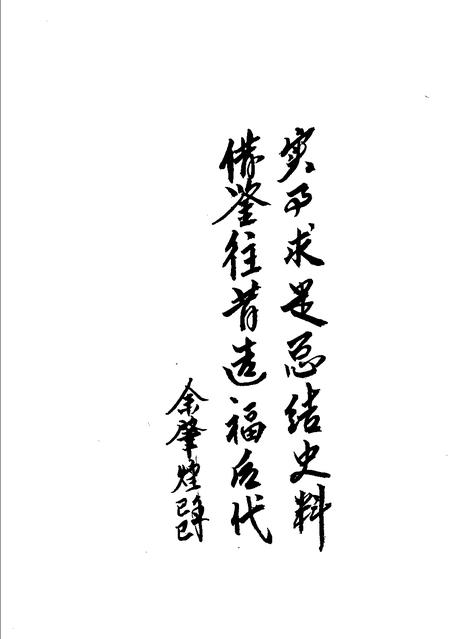 实事求是总结史料
借鉴往昔造福后代
余肇煌 己巳年